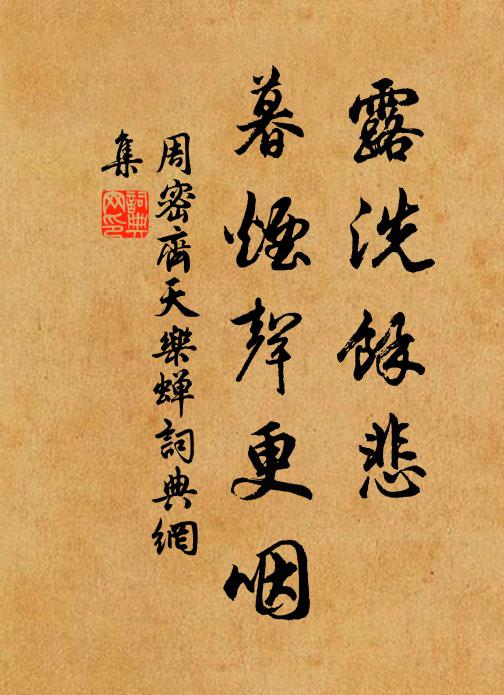 露洗餘悲
暮煙聲更咽
周密齊天樂蟬詞典網
集
詞典
网印